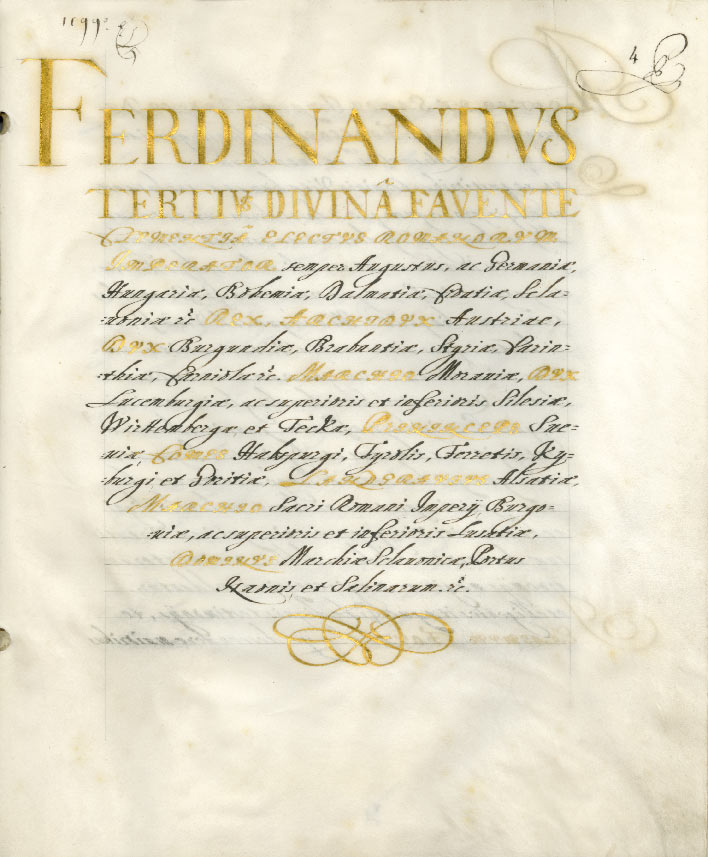 1699.
4
FERDINANDVS
TERTIVS DIVINÃ FAVENTE
CLEMENTIÃ ELECTVS ROMANORVM
IMPERATOR semper Augustus, ac Germaniæ,
Hungariæ, Bohemiæ, Dalmatiæ, Croatiæ, Scla-
uoniæ &c REX, ARCHIDVX Austriae,
DVX Burgundiæ, Brabantiæ, Styriæ, Carin-
thiæ, Carniolæ &c. MARCHIO Morauiæ, DVX
Lucemburgiæ, ac superioris et inferioris Silesiæ,
Wirttembergæ et Teckæ, PRINCEPS Sue-
uiæ, COMES Habspurgi, Tyrolis, Ferretis, Ky-
burgi et Goritiæ, LANDGRAVIVS Alsatiæ,
MARCHIO Sacri Romani Imperij, Burgo-
uiæ, ac superioris et inferioris Lusatiæ,
DOMINVS Marchiæ Sclauonicæ, Portus
Naonis, et Salinarum. &c.